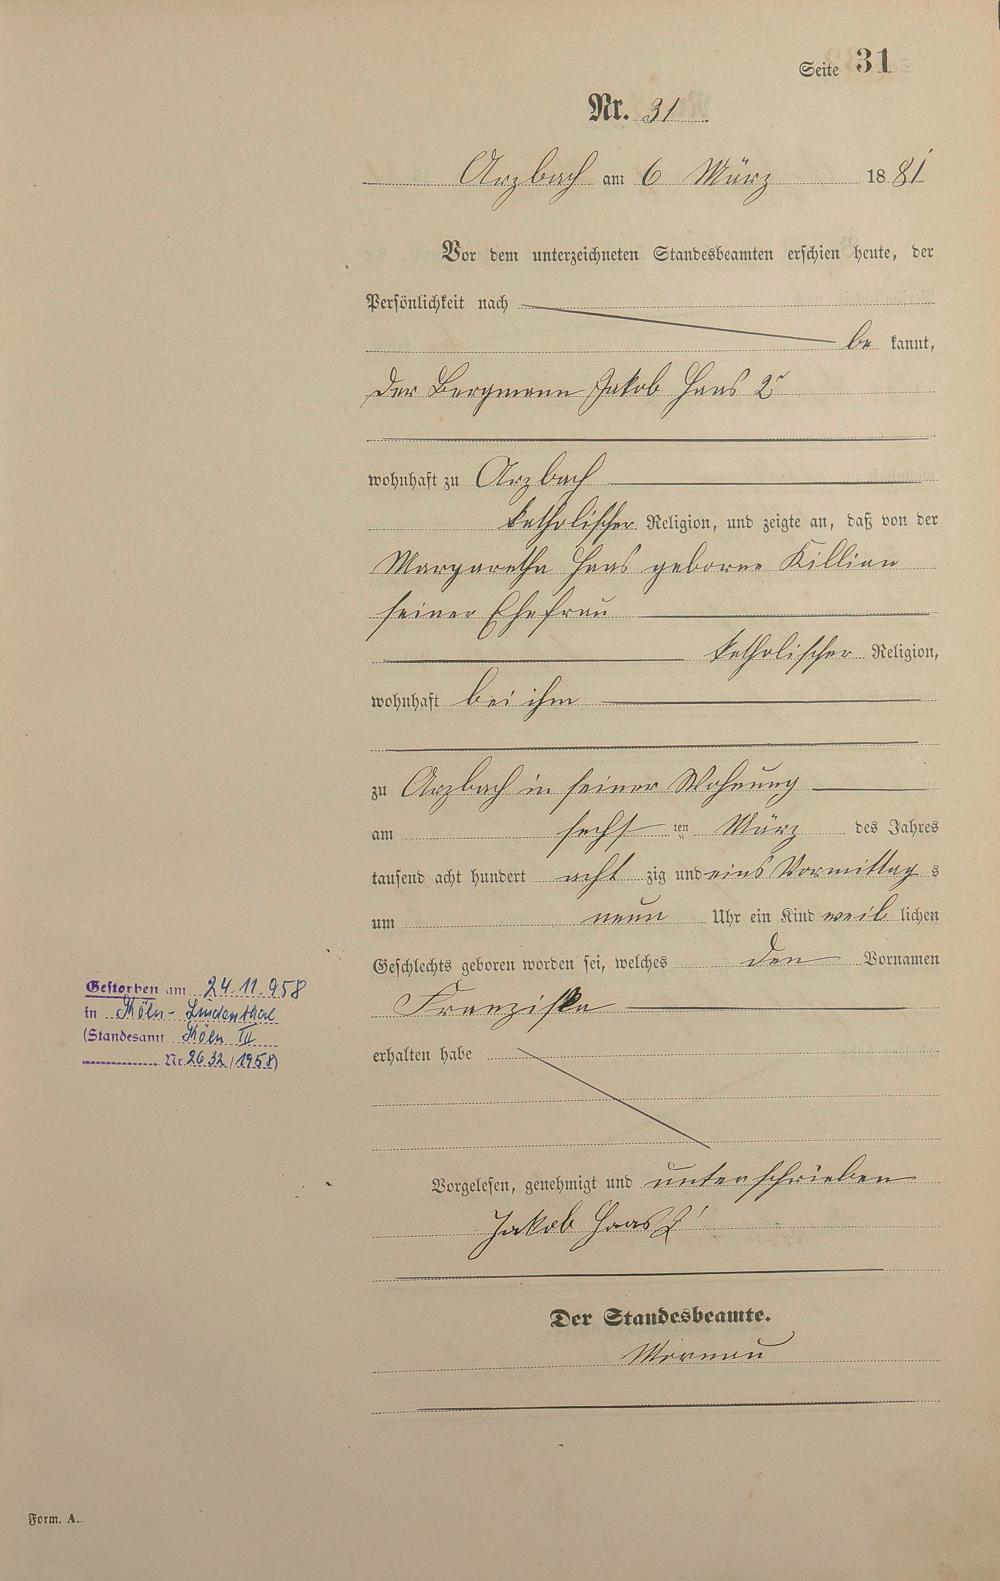 Seite 31
Nr. 31
Arzbach am 6 März 1881
Vor dem unterzeichneten Standesbeamten erschien heute, der
Persönlichkeit nach
be kannt,
der Bergmann Jakob Haas 2r
wohnhaft zu Arzbach
katholischer Religion, und zeigte an, daß von der
Margaretha Haas geborne Killian
seiner Ehefrau
katholischer Religion,
wohnhaft bei ihm
zu Arzbach in seiner Wohnung
am sechsten März des Jahres
tausend acht hundert acht zig und eins Vormittag s
um neun Uhr ein Kind weib lichen
Geschlechts geboren worden sei, welches den Vornamen
Franziska
erhalten habe
Vorgelesen, genehmigt und unterschrieben
Jakob Haas 2
Der Standesbeamte.
Gestorben am 24.11.958
in Köln-Lindenthal
(Standesamt Köln III
Nr. 2632/1958)
Form. A.